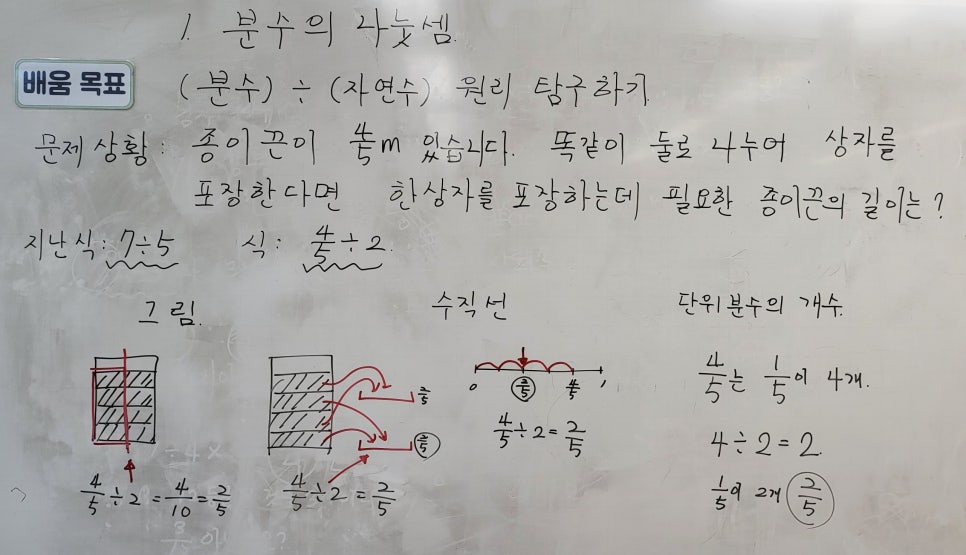 1. 분수의 나눗셈.
배움 목표
(분수) ÷ (자연수) 원리 탐구하기
문제 상황: 종이 끈이 4/5 m 있습니다. 똑같이 둘로 나누어 상자를
포장한다면 한상자를 포장하는데 필요한 종이끈의 길이는?
지난 식: 7÷5 식: 4/5 ÷ 2.
그림.
4/5 ÷ 2 = 4/10 = 2/5
2/5
2/5
4/5 ÷ 2 = 2/5
수직선
0 2/5 4/5 1
4/5 ÷ 2 = 2/5
단위분수의 개수.
4/5는 1/5이 4개.
4 ÷ 2 = 2
1/5이 2개 2/5